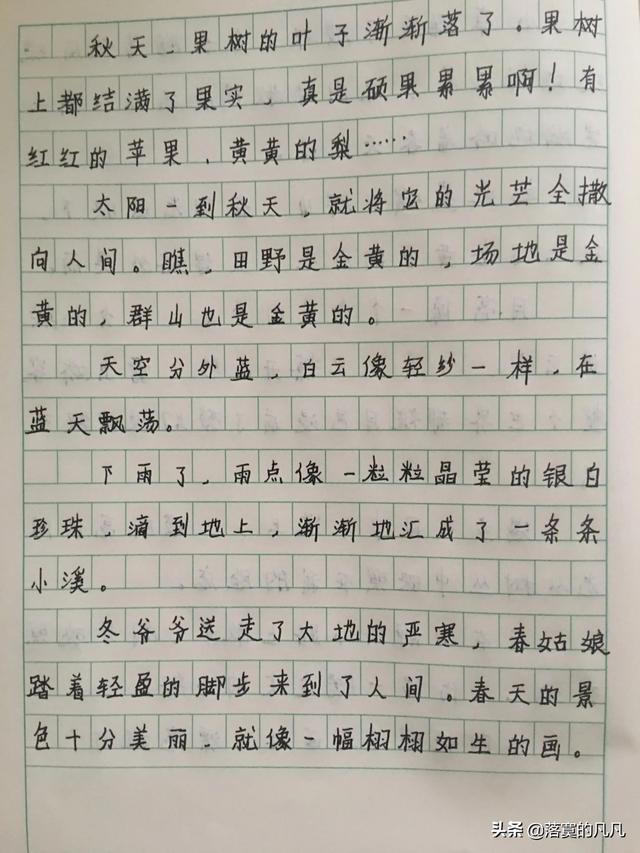 秋天、果树的叶子渐渐落了。果树
上都结满了果实，真是硕果累累啊！有
红红的苹果、黄黄的梨……
太阳一到秋天，就将它的光芒全撒
向人间。瞧，田野是金黄的，场地是金
黄的，群山也是金黄的。
天空分外蓝，白云像轻纱一样，在
蓝天飘荡。
下雨了，雨点像一粒粒晶莹的银白
珍珠，滴到地上，渐渐地汇成了一条条
小溪。
冬爷爷送走了大地的严寒，春姑娘
踏着轻盈的脚步来到了人间。春天的景
色十分美丽、就像一幅栩栩如生的画。
头条 @落寞的凡凡